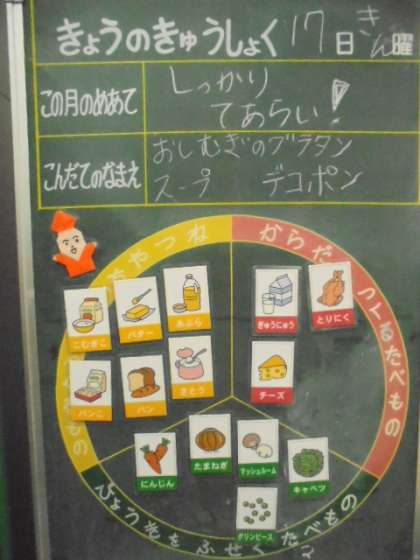 きょうのきゅうしょく 17日 きん曜
この月のめあて
しっかり
てあらい!
こんだてのなまえ
おしむぎのグラタン
スープ デコポン
ちやつね
からだ
つくるたべもの
こむぎこ
バター
あぶら
ぎゅうにゅう
とりにく
パンこ
パン
さとう
チーズ
にんじん
たまねぎ
マッシュルーム
キャベツ
グリンピース
びょうきをふせぐたべもの